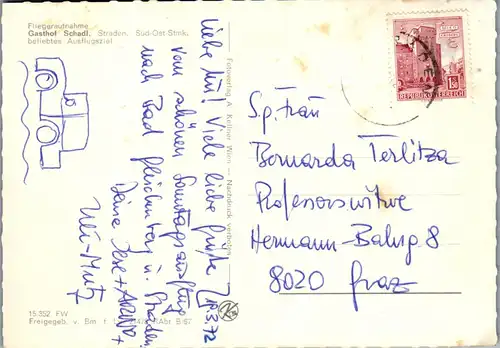 Fliegeraufnahme
Gasthof Schadl, Straden, Süd-Ost-Stmk.
beliebtes Ausflugsziel
Liebe Mu! Viele liebe Grüße
vom schönen Sonntagsausflug
nach Bad Gleichenberg u. Straden.
Deine Ilse + ARNO +
Uli-Mutz
19.3.72
Fotoverlag A. Kellner Wien — Nachdruck verboten
15.352 FW
Freigegeb. v. Bm. f. RAbt B/67
REPUBLIK ÖSTERREICH
S.g. Frau
Bernarda Terlitza
Professorswitwe
Hermann-Bahrg. 8
8020 Graz